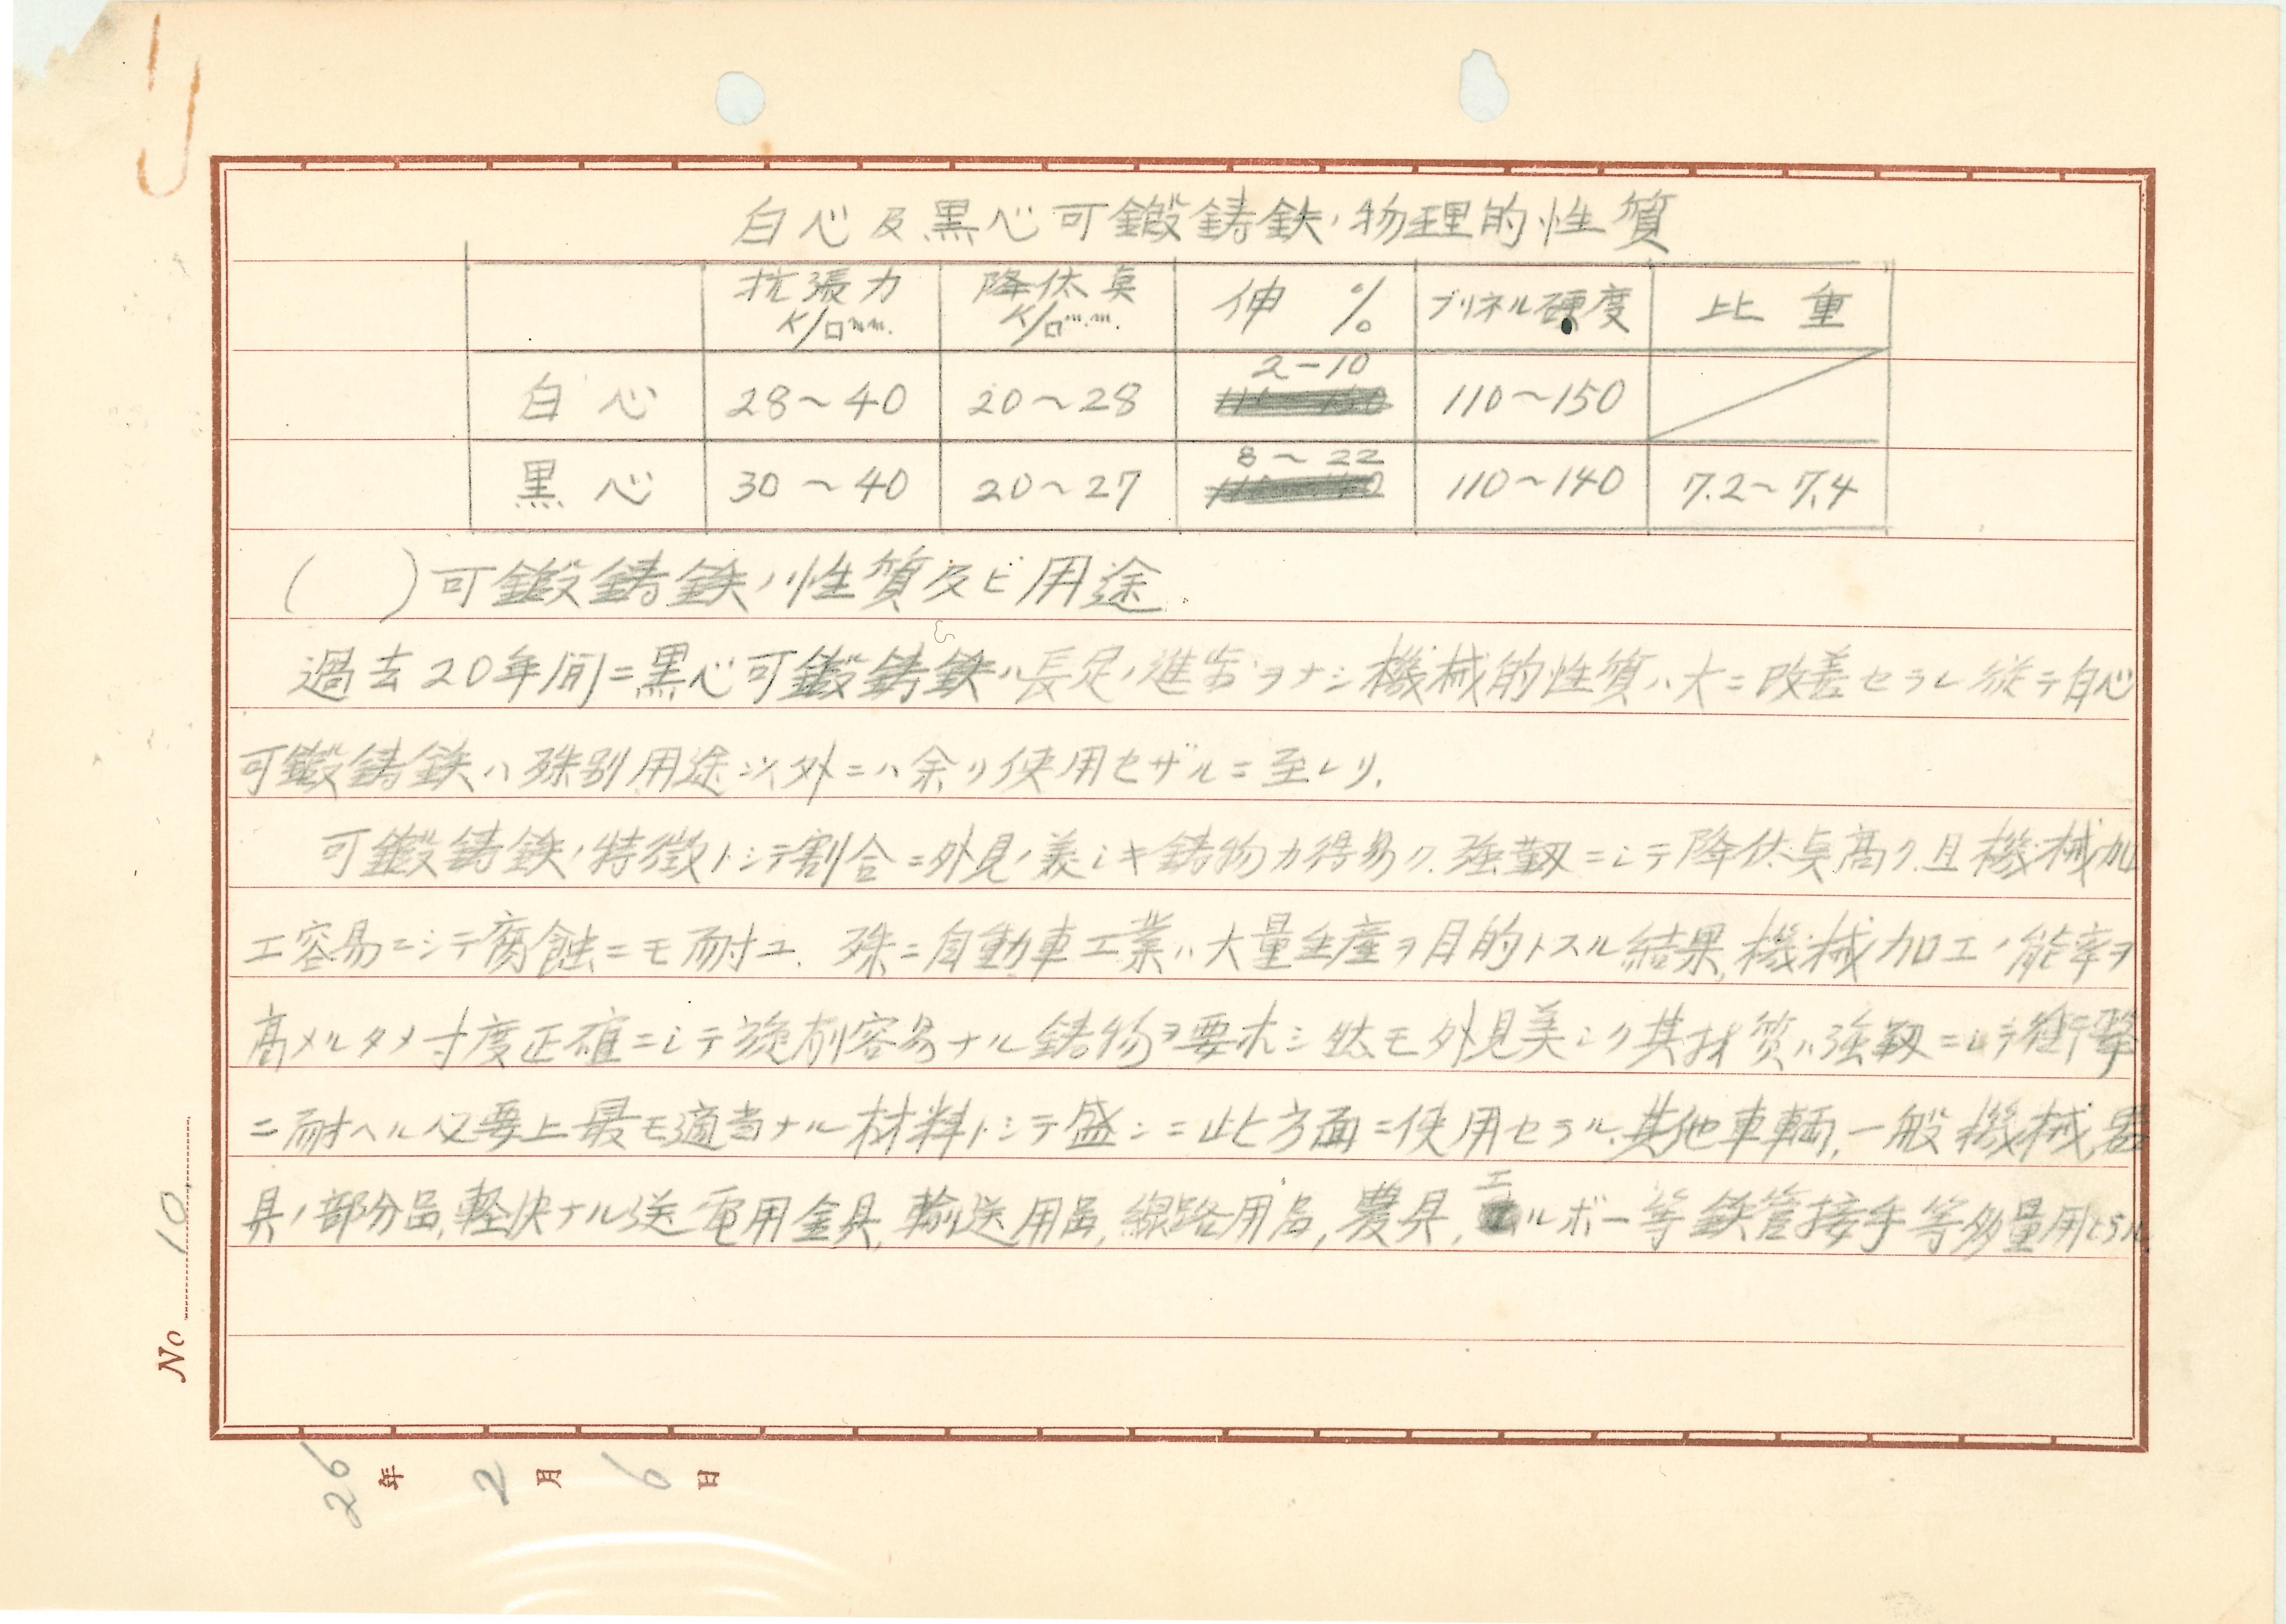 白心及黒心可鍛鋳鉄ノ物理的性質
抗張力 K/□mm. 降伏点 K/□m.m. 伸 % ブリネル硬度 比重
白心 28〜40 20〜28 2-10 110〜150
黒心 30〜40 20〜27 8〜22 110〜140 7.2〜7.4
( )可鍛鋳鉄ノ性質及ビ用途.
過去20年間ニ黒心可鍛鋳鉄ハ長足ノ進歩ヲナシ機械的性質ハ大ニ改善セラレ従テ白心
可鍛鋳鉄ハ殊別用途以外ニハ余リ使用セザルニ至レリ.
可鍛鋳鉄ノ特徴トシテ割合ニ外見ノ美シキ鋳物カ得易ク.強靱ニシテ降伏点高ク.且機械加
工容易ニシテ腐蝕ニモ耐エ.殊ニ自動車工業ハ大量生産ヲ目的トスル結果,機械加工ノ能率ヲ
高メルタメ寸度正確ニシテ旋削容易ナル鋳物ヲ要求シ然モ外見美シク其材質ハ強靱ニシテ衝撃
ニ耐ヘル必要上最モ適当ナル材料トシテ盛ンニ此方面ニ使用セラル.其他車輌,一般機械,器
具ノ部分品,軽快ナル送電用金具,輸送用品,線路用品,農具,エルボー等鉄管接手等多量用ヒラル.
No 10.
26年 2月 6日